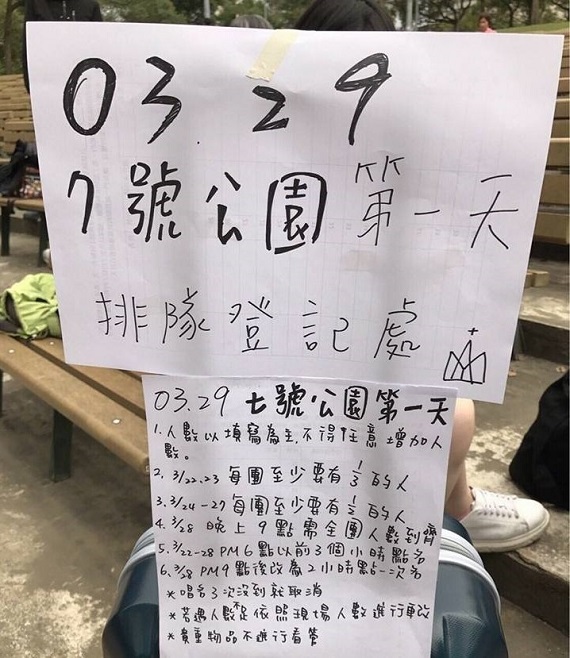 03.29
7號公園第一天
排隊登記處
03.29 七號公園第一天
1.人數以填寫為主,不得任意增加人
數。
2. 3/22.23 每團至少要有 1/3 的人
3. 3/24-27 每團至少要有 1/2 的人
4. 3/28 晚上9點需全團人數到齊
5. 3/22-28 PM6點以前3個小時點名
6. 3/28 PM9點後改為2小時點一次名
*唱名3次沒到就取消
*若遇人數不足依照現場人數進行更改
*貴重物品不進行看管